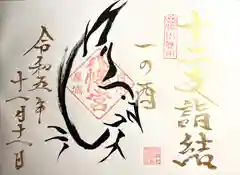 十二支詣結
一の酉
令和五年
十一月十一日